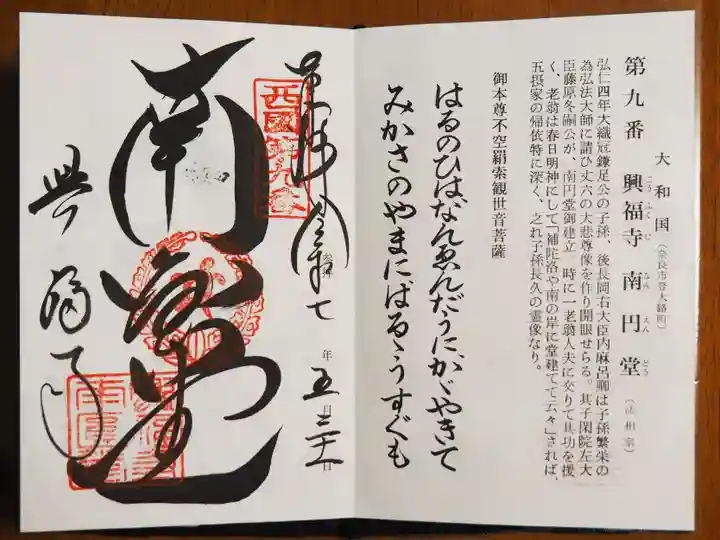 大和国（奈良市登大路町）
第九番 興福寺 南円堂（法相宗）
こうふくじ なんえんどう
弘仁四年大織冠鎌足公の子孫、後長岡右大臣内麻呂卿は子孫繁栄の
為弘法大師に請ひ丈六の大悲尊像を作り開眼せらる。其子閑院左大
臣藤原冬嗣公が、南円堂御建立 時に一老翁人夫に交りて其功を援
く、老翁は春日明神にして「補陀洛や南の岸に堂建てて云々」されば、
五摂家の帰依特に深く、之れ子孫長久の霊像なり。
御本尊不空羂索観世音菩薩
はるのひはなんゑんだうにかゞやきて
みかさのやまにばるゝうすぐも
西國第九番
奉拝 令和七年五月三十一日
南円堂
興福寺